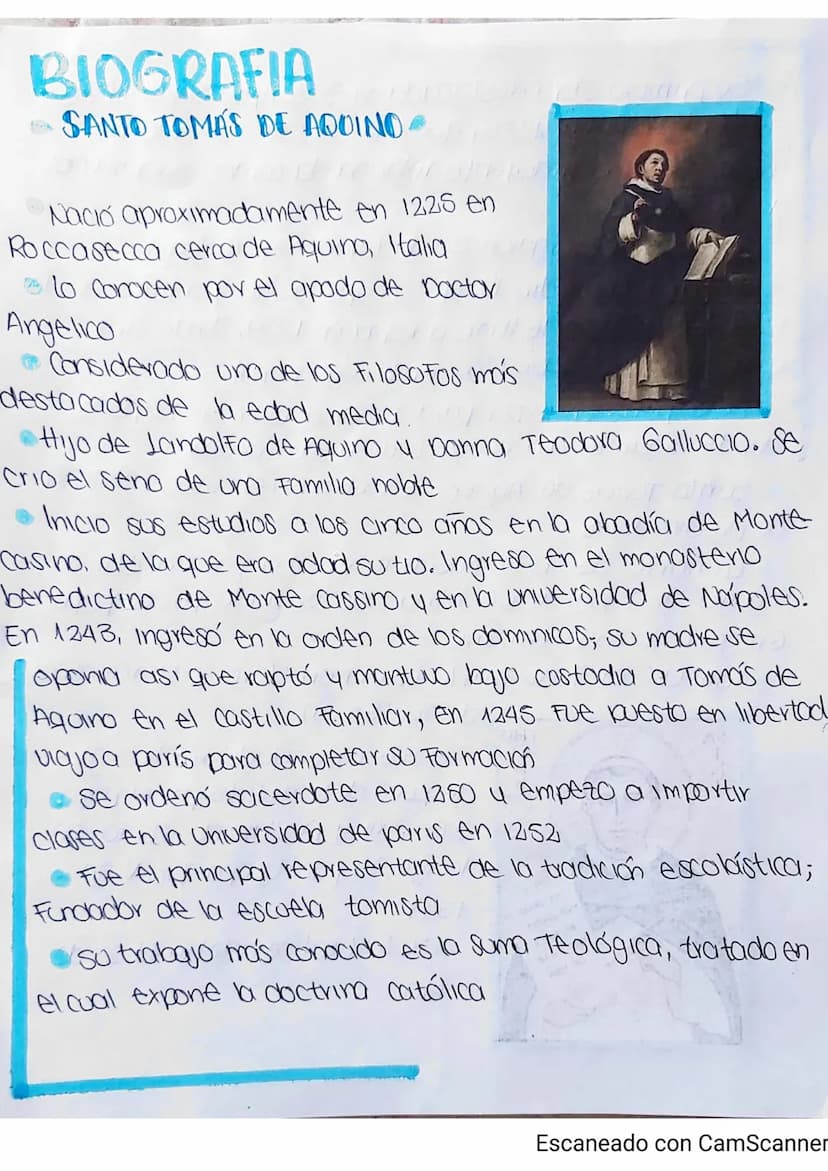 BIOGRAFIA
SANTO TOMÁS DE AQUINO
Nació aproximadamente en 1225 en
Roccasecca cerca de Aquino, Italia
Lo conocen por el apodo de Doctor
Angélico
Considerado uno de los Filosofos más
destacados de la edad media.
Hijo de Landolfo de Aquino y Donna Teodora Galluccio. Se
crio el seno de una Familia noble
Inicio sus estudios a los cinco años en la abadía de Monte
casino, de la que era adad su tio. Ingreso en el monasterio
benedictino de Monte Cassino y en la universidad de Nápoles.
En 1243, ingresó en la orden de los dominicos; su madre se
oponia asi que raptó y mantuvo bajo custodia a Tomás de
Aquino en el Castillo Familiar, en 1245 Fue puesto en libertad
viajo a parís para completar su Formación
Se ordenó sacerdote en 1250 y empezo a impartir
clases en la Universidad de paris en 1252
Fue el principal representante de la tradición escolástica;
Fundador de la escuela tomista
Su trabajo más conocido es la Suma Teológica, tratado en
el cual expone la doctrina católica
Escaneado con CamScanner